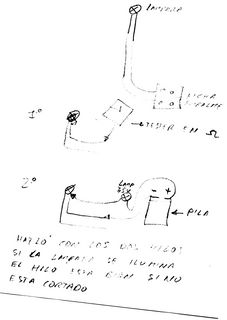 LAMPARA
1º
TESTER EN Ω
2º
LAMP
- +
PILA
CON LOS DOS HILOS
SI LA LAMPARA SE ILUMINA
EL HILO ESTA BIEN SI NO
ESTA CORTADO